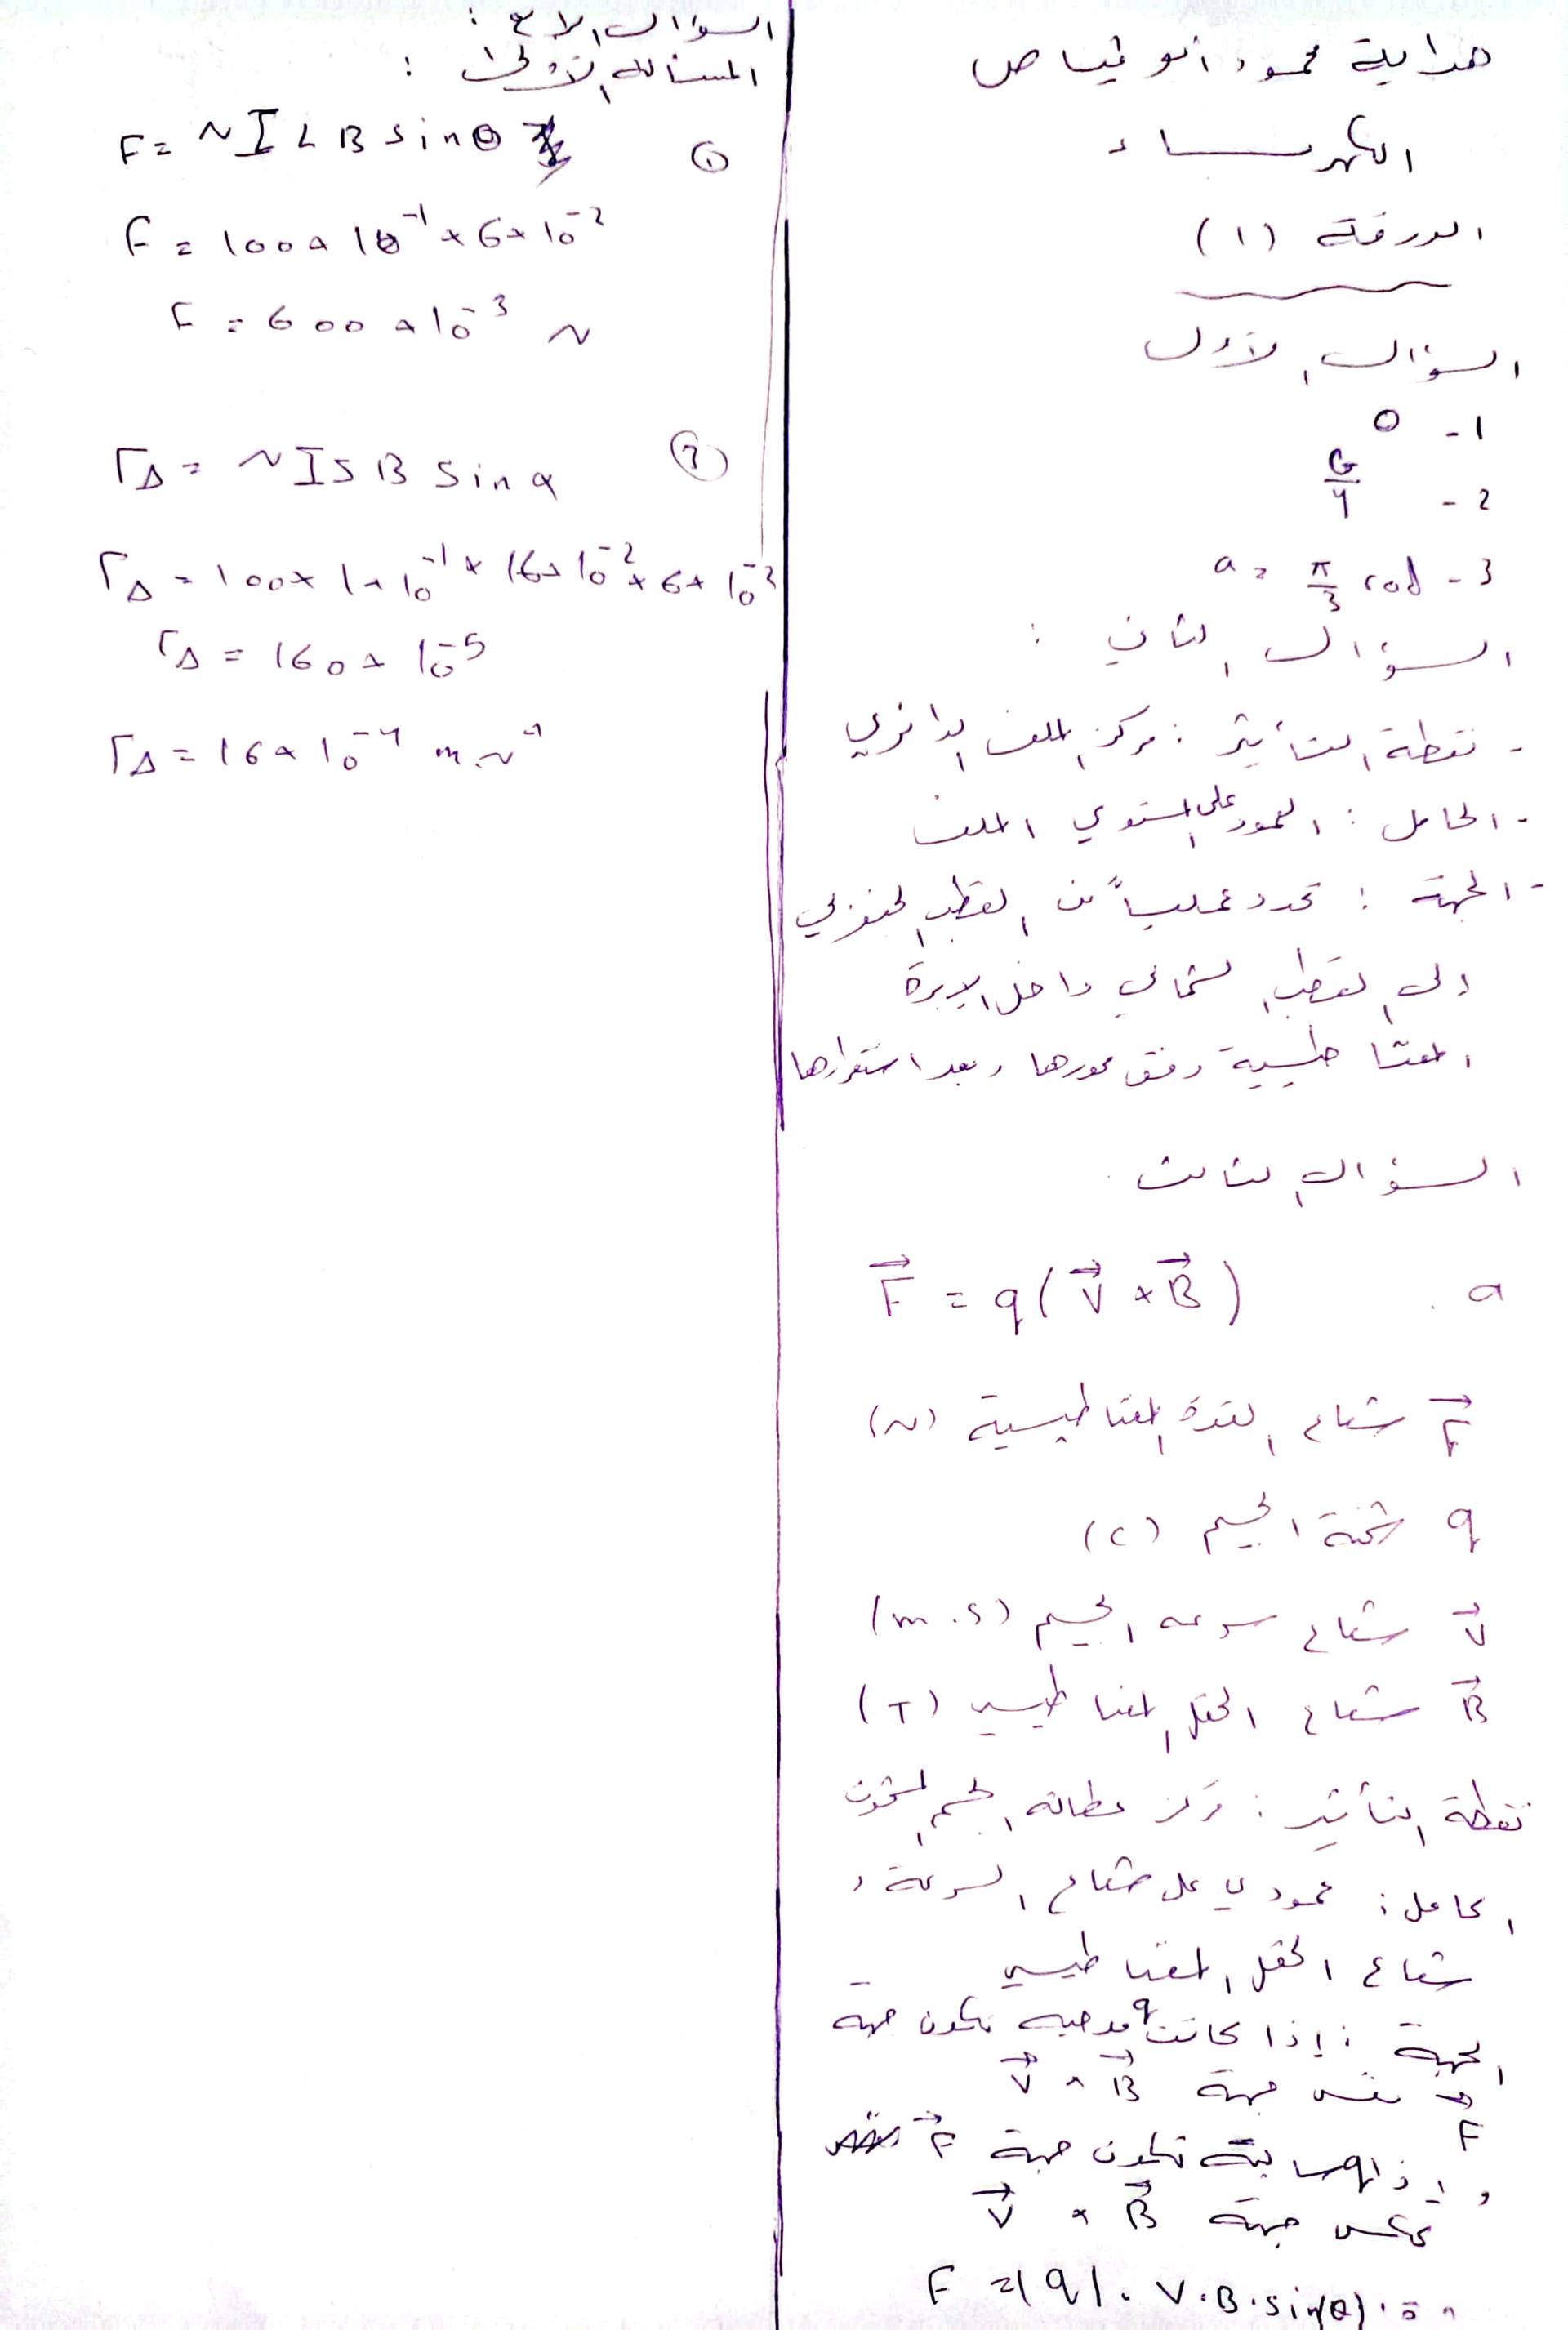 هداية محمود أبو قياص
الكهرباء
الورقة (١)
السؤال الأول
1- 0
2- G/4
3- a = π/3 rad
السؤال الثاني :
- نقطة التأثير : مركز الملف الدائري
- الحامل : العمود على المستوي الملف
- الجهة : تحدد عملياً من القطب الجنوبي
إلى القطب الشمالي داخل الإبرة
المغناطيسية وفق محورها وبعد استقرارها
السؤال الثالث
a. F = q(V × B)
F شعاع القوة المغناطيسية (N)
q شحنة الجسيم (C)
V شعاع سرعة الجسيم (m.s)
B شعاع الحقل المغناطيسي (T)
نقطة التأثير : مركز عطالة الجسم المشحون
الحامل : عمودي على شعاع السرعة و
شعاع الحقل المغناطيسي
الجهة : إذا كانت q موجبة تكون جهة
F نفس جهة V × B
و إذا q سالبة تكون جهة F
عكس جهة V × B
F = |q| . V.B.sin(θ)
السؤال الرابع :
المسألة الأولى :
① F = N I L B sin θ
F = 100 × 10⁻¹ × 6 × 10⁻²
F = 600 × 10⁻³ N
② ΓΔ = N I S B sin α
ΓΔ = 100 × 1 × 10⁻¹ × 16 × 10⁻² × 6 × 10⁻²
ΓΔ = 160 × 10⁻⁵
ΓΔ = 16 × 10⁻⁴ m.N